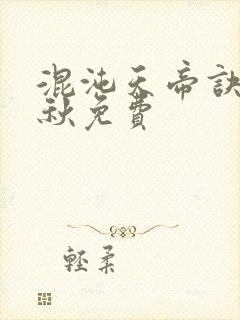 混沌天帝訣
秋免費
輕柔